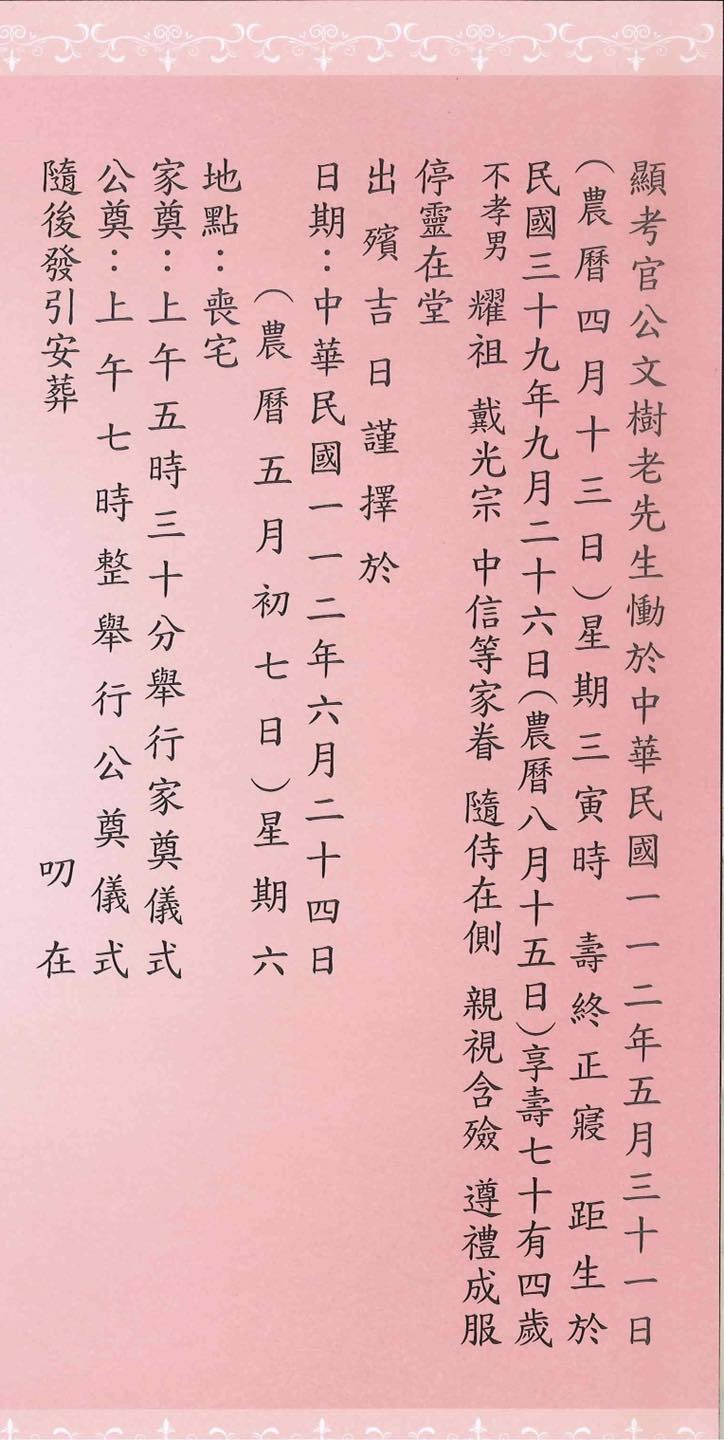 顯考官公文樹老先生慟於中華民國一一二年五月三十一日
(農曆四月十三日)星期三寅時 壽終正寢 距生於
民國三十九年九月二十六日(農曆八月十五日)享壽七十有四歲
不孝男 耀祖 戴光宗 中信等家眷 隨侍在側 親視含殮 遵禮成服
停靈在堂
出殯吉日謹擇於
日期：中華民國一一二年六月二十四日
(農曆五月初七日)星期六
地點：喪宅
家奠：上午五時三十分舉行家奠儀式
公奠：上午七時整舉行公奠儀式
隨後發引安葬 叨在